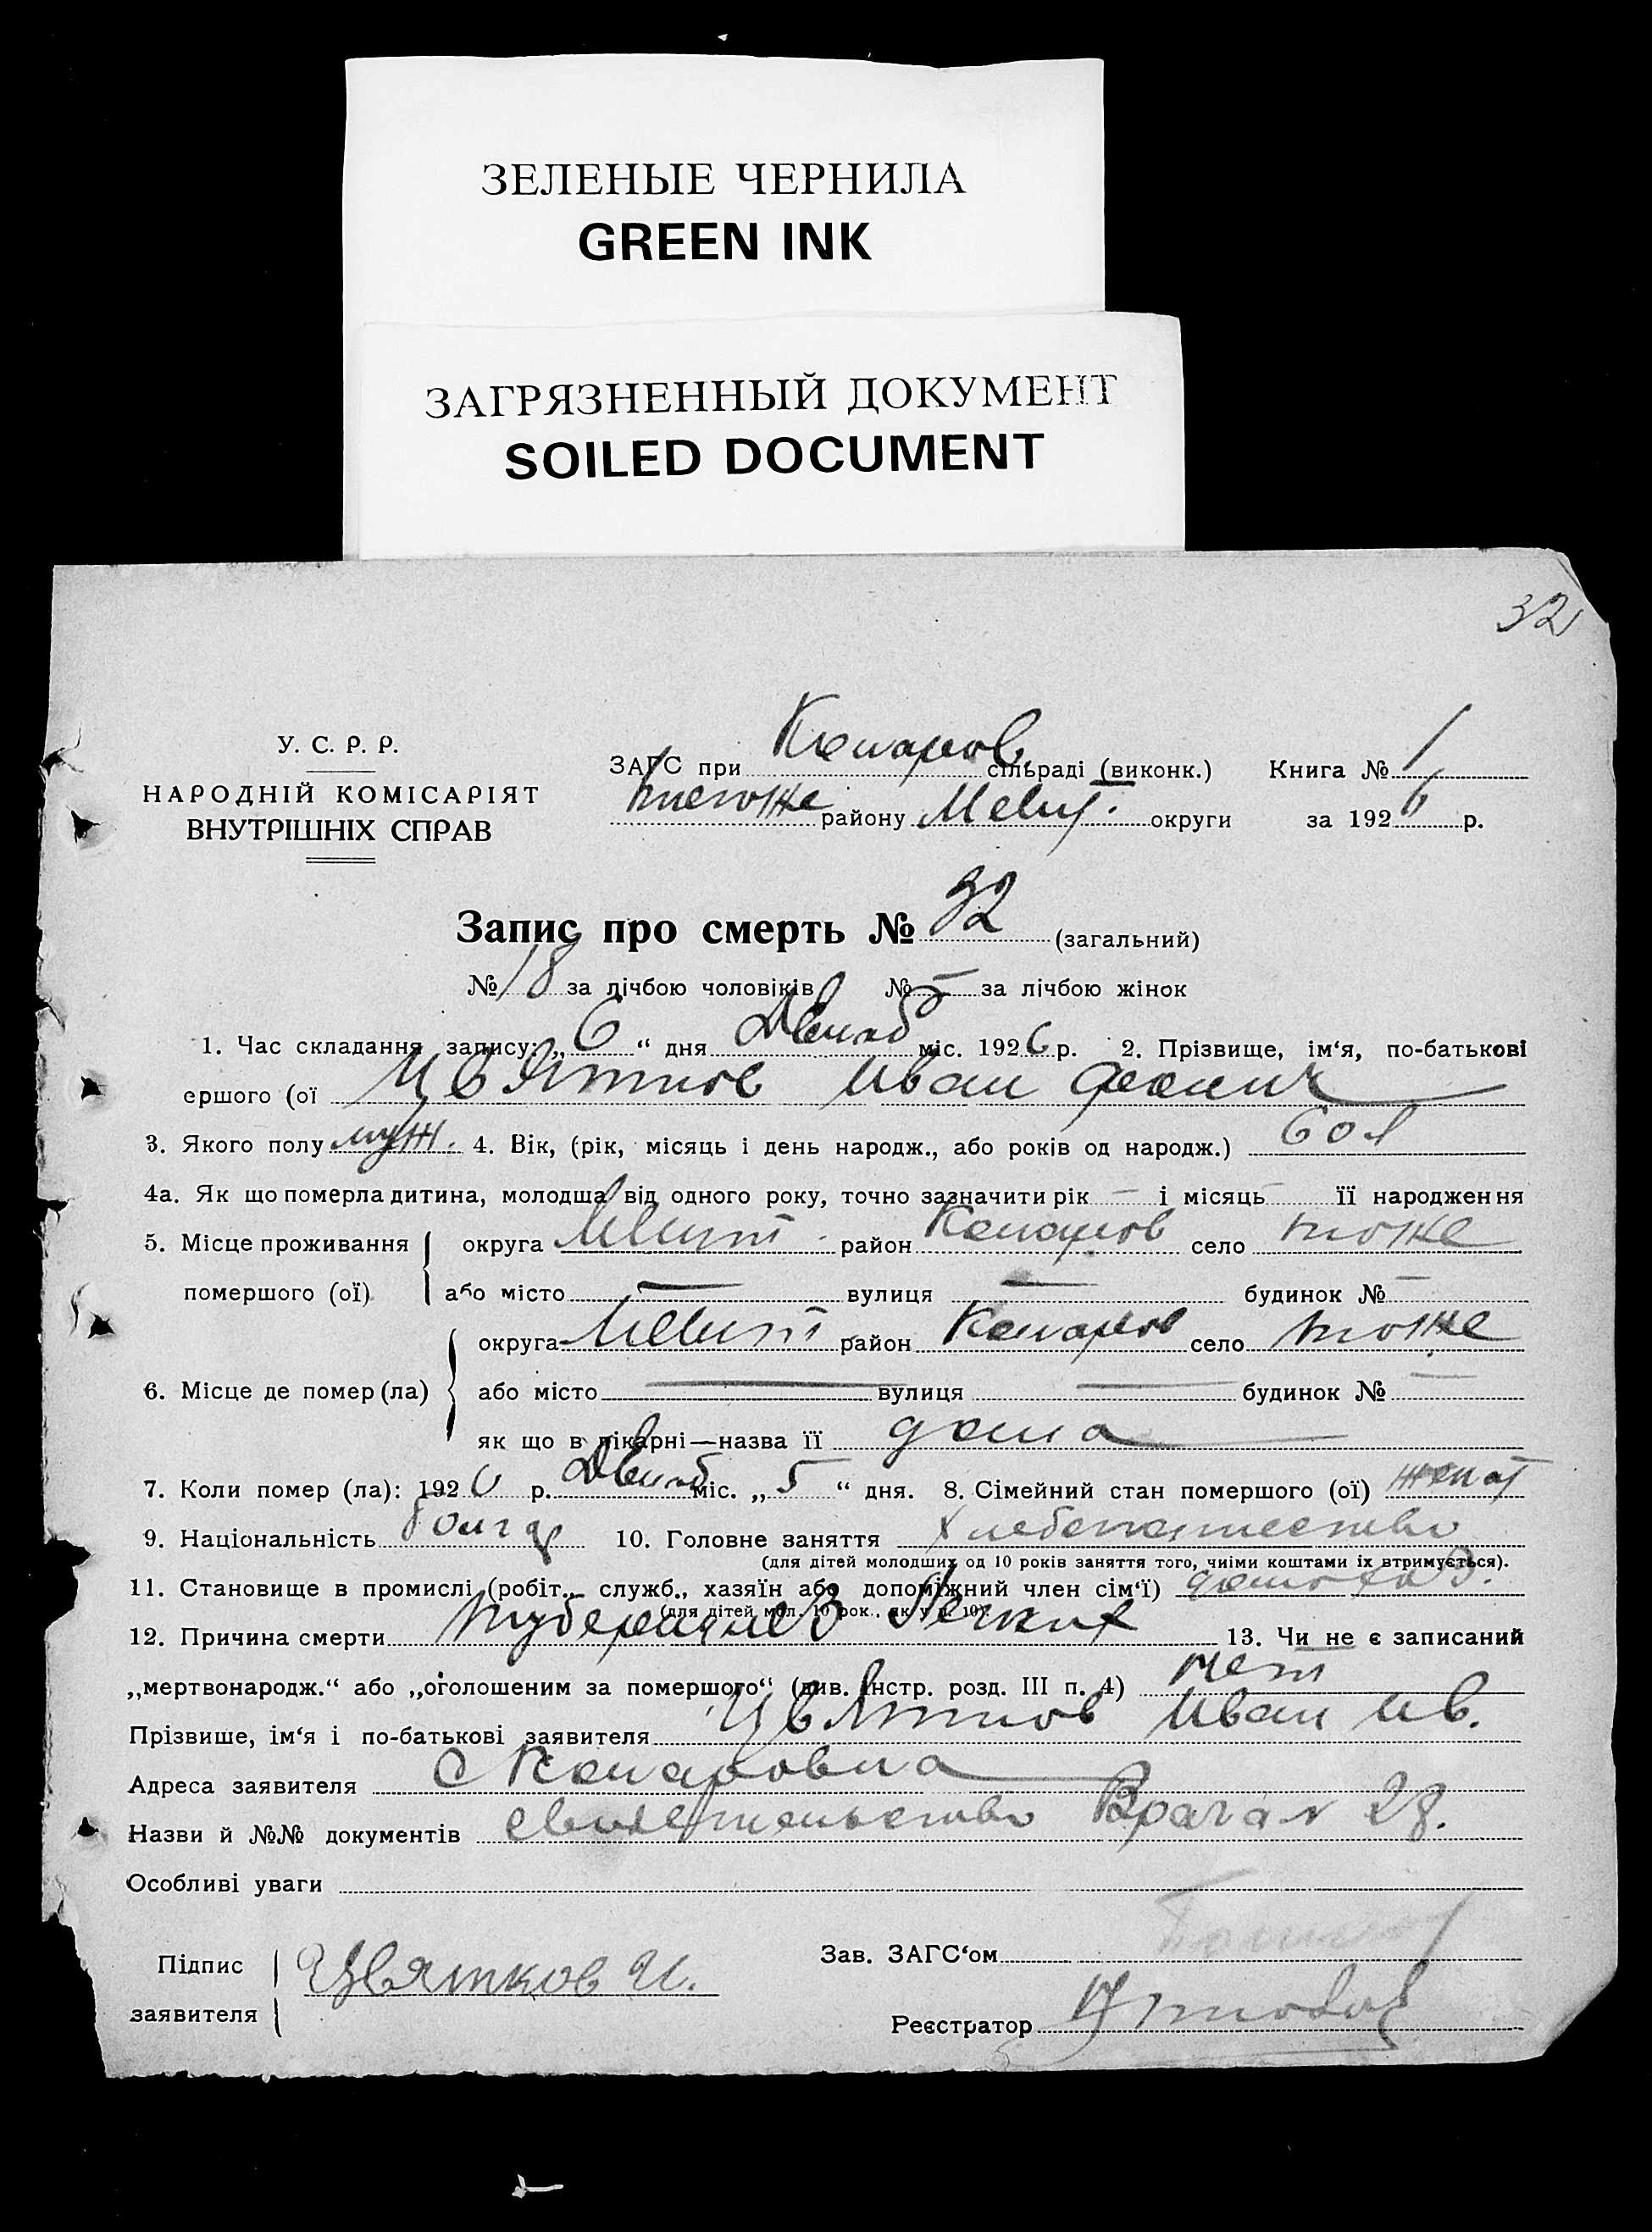 ЗЕЛЕНЫЕ ЧЕРНИЛА
GREEN INK
ЗАГРЯЗНЕННЫЙ ДОКУМЕНТ
SOILED DOCUMENT
32
У. С. Р. Р.
НАРОДНІЙ КОМІСАРІЯТ
ВНУТРІШНІХ СПРАВ
ЗАГС при Комаров. сільраді (виконк.) Книга № 1
району Мелит. округи за 1926 р.
Запис про смерть № 32 (загальний)
№ 18 за лічбою чоловіків № — за лічбою жінок
1. Час складання запису: „6“ дня міс. 1926 р. 2. Прізвище, ім‘я, по-батькові
ершого (ої Цвятков Иван
3. Якого полу муж. 4. Вік, (рік, місяць і день народж., або років од народж.) 60 л
4а. Як що померла дитина, молодша від одного року, точно зазначити рік — і місяць — її народження
5. Місце проживання округа Мелит. район Комаров село тоже
помершого (ої) або місто — вулиця — будинок № —
округа Мелит район Комаров село тоже
6. Місце де помер (ла) або місто — вулиця — будинок № —
як що в лікарні—назва її дома
7. Коли помер (ла): 1926 р. міс. „5“ дня. 8. Сімейний стан помершого (ої) женат
9. Національність болгар 10. Головне заняття хлебопашество
(для дітей молодших од 10 років заняття того, чиїми коштами їх втримується).
11. Становище в промислі (робіт., служб., хазяїн або допоміжний член сім‘ї) домохоз.
(для дітей мол. 10 рок., як у п. 10).
12. Причина смерти туберкулез легких 13. Чи не є записаний
„мертвонародж.“ або „оголошеним за помершого“ (див. інстр. розд. III п. 4) нет
Прізвище, ім‘я і по-батькові заявителя Цвятков Иван Ив.
Адреса заявителя с Комаровка
Назви й №№ документів свидетельство Врача № 28.
Особливі уваги
Підпис Цвятков И. Зав. ЗАГС‘ом
заявителя Реєстратор